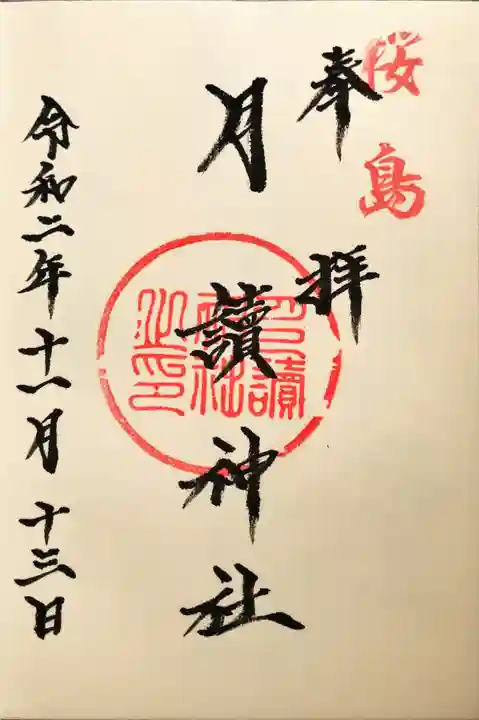 桜島
奉拝
月讀神社
月讀神社之印
令和二年十一月十三日